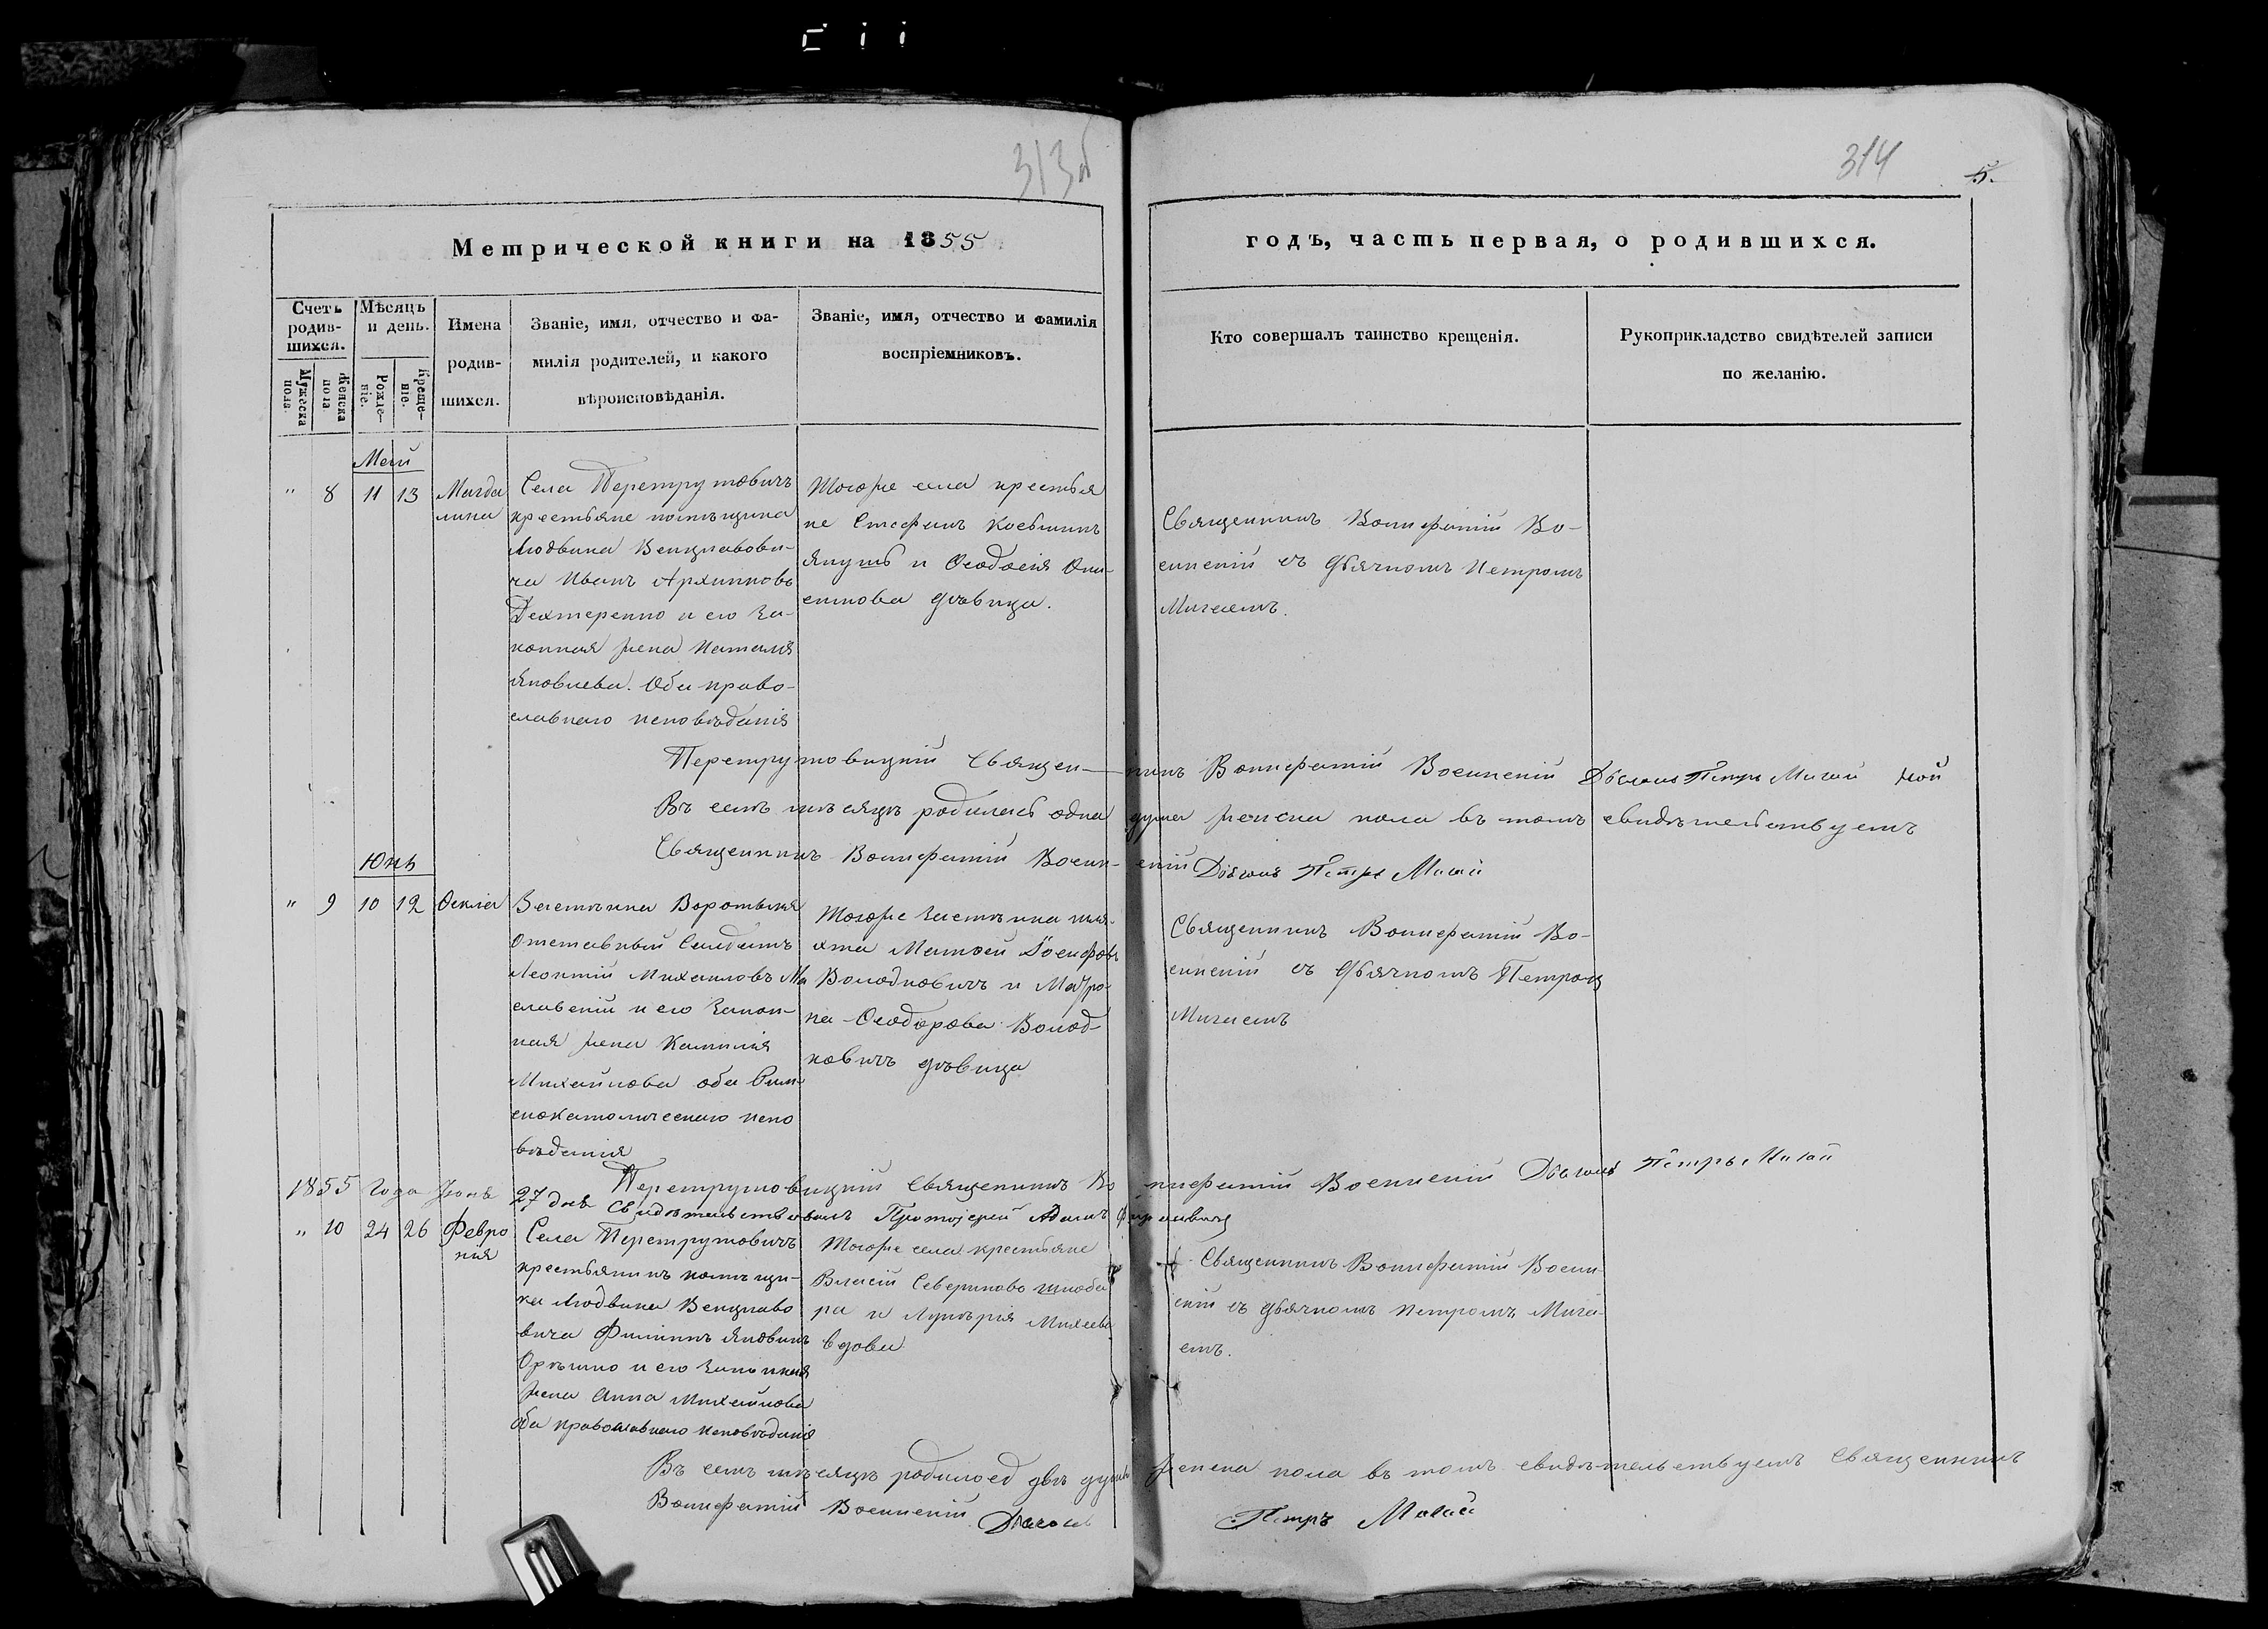 313б
314
5.
Метрической книги на 1855
годъ, часть первая, о родившихся.
Счетъ родив-шихся.
Мѣсяцъ и день.
Имена родив-шихся.
Званіе, имя, отчество и фа-
милія родителей, и какого
вѣроисповѣданія.
Званіе, имя, отчество и фамилія
воспріемниковъ.
Кто совершалъ таинство крещенія.
Рукоприкладство свидѣтелей записи
по желанію.
Мужеска пола.
Женска пола
Рожде-ніе.
Креще-ніе.
Маій
" 8 11 13
Магда
лина
Села Перетрутовичъ
крестьяне помѣщика
Людвика Венцлавови-
ча Иванъ Архиповъ
Дехтеренко и его за-
конная жена Наталія
Яковлева. Оба право-
славнаго исповѣданія
Тогоже села крестья
не Стефанъ
и Ѳеодосія
дѣвица.
Священникъ Вонифатій Во-
синскій съ дьячкомъ Петромъ
Мигаемъ.
Перетрутовицкій Священ-никъ Вонифатій Восинскій Дьячокъ Петръ Мигай
Въ семъ мѣсяцѣ родилась одна душа женска пола въ томъ свидѣтельствуетъ
Священникъ Вонифатій Восин-скій Дьячокъ Петръ Мигай
Юнь
" 9 10 12
Ѳекла
Застѣнка Воротыня
отставный Солдатъ
Леонтій Михаиловъ Ма
славскій и его закон-
ная жена Камилія
Михайлова оба Рим
скокатолическаго испо
вѣданія
Тогоже застѣнка шля-
хта Матѳей Іосифовъ
Володковичъ и Матро-
на Ѳеодорова Волод-
ковичъ дѣвица
Священникъ Вонифатій Во-
синскій съ дьячкомъ Петромъ
Мигаемъ
Перетрутовицкій Священникъ Во нифатій Восинскій Дьячокъ Петръ Мигай
1855 года Юня 27 дня Свидѣтельствовалъ Протоіерей Адамъ
" 10 24 26
Февро
нія
Села Перетрутовичъ
крестьянинъ помѣщи-
ка Людвика Венцлаво
вича Филиппъ
Орѣшко и его законная
жена Анна Михайлова
оба православнаго исповѣданія
Тогоже села крестьяне
Власій Севериновъ
и Лукерія Михеева
вдова
Священникъ Вонифатій Восин
скій съ дьячкомъ Петромъ Мига-
емъ.
Въ семъ мѣсяцѣ родилось двѣ душы женска пола въ томъ свидѣтельствуетъ Священникъ
Вонифатій Восинскій Дьячокъ Петръ Мигай